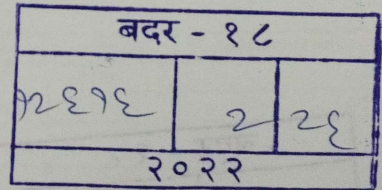 बदर - १८
१२६१६ २ २६
२०२२